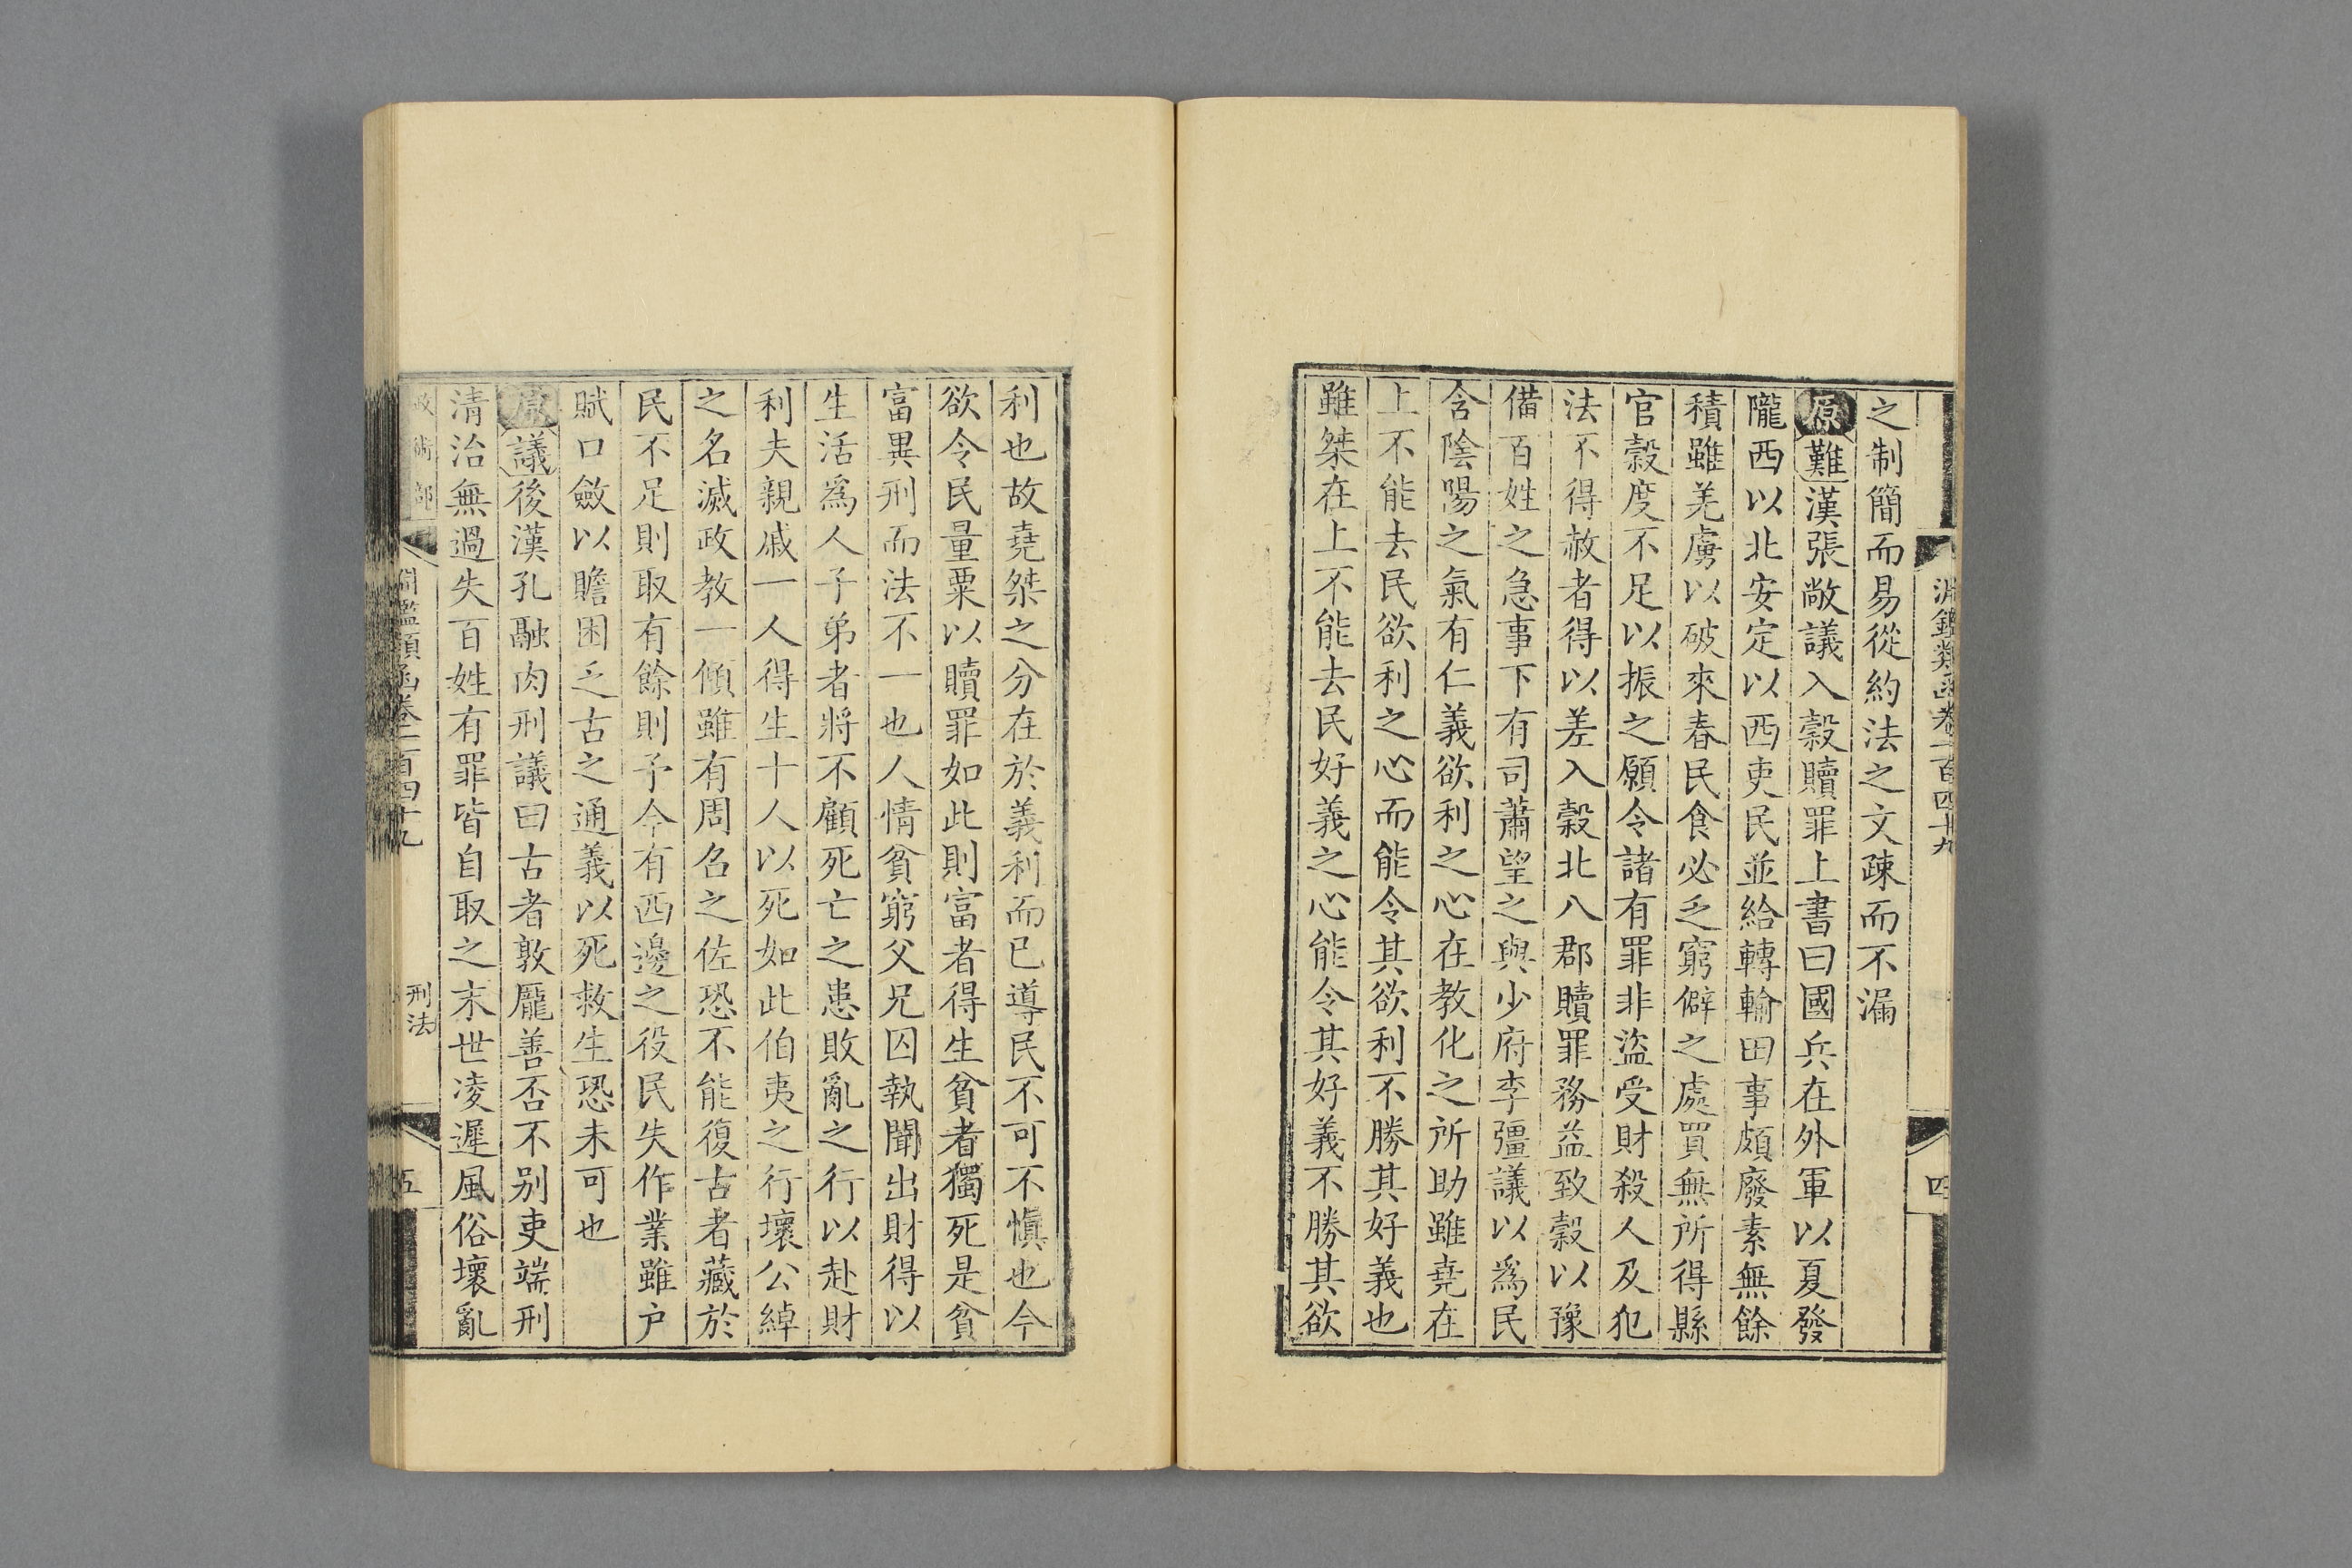 淵鑑類函卷一百四十九
四
之制簡而易從約法之文疎而不漏
原難漢張敞議入穀贖罪上書曰國兵在外軍以夏發
隴西以北安定以西吏民並給轉輸田事頗廢素無餘
積雖羌虜以破來春民食必乏窮僻之處買無所得縣
官穀度不足以振之願令諸有罪非盜受財殺人及犯
法不得赦者得以差入穀北八郡贖罪務益致穀以豫
備百姓之急事下有司蕭望之與少府李彊議以爲民
含陰陽之氣有仁義欲利之心在教化之所助雖堯在
上不能去民欲利之心而能令其欲利不勝其好義也
雖桀在上不能去民好義之心能令其好義不勝其欲
利也故堯桀之分在於義利而已導民不可不慎也今
欲令民量粟以贖罪如此則富者得生貧者獨死是貧
富異刑而法不一也人情貧窮父兄囚執聞出財得以
生活爲人子弟者將不顧死亡之患敗亂之行以赴財
利夫親戚一人得生十人以死如此伯夷之行壞公綽
之名滅政教一傾雖有周召之佐恐不能復古者藏於
民不足則取有餘則予今有西邊之役民失作業雖户
賦口斂以贍困乏古之通義以死救生恐未可也
原議後漢孔融肉刑議曰古者敦厖善否不别吏端刑
清治無過失百姓有罪皆自取之末世凌遲風俗壞亂
政術部
淵鑑類函卷一百四十九
刑法
五